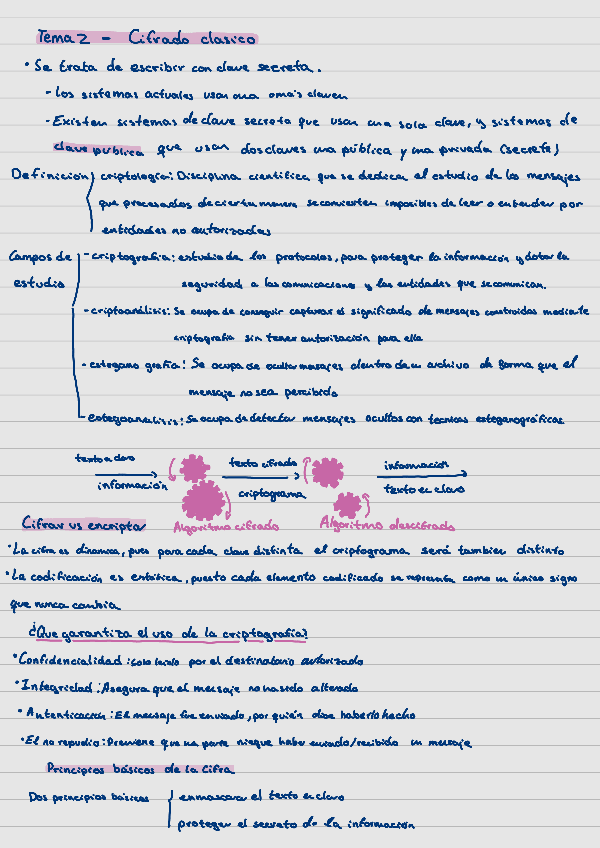 Tema 2 - Cifrado clasico
• Se trata de escribir con clave secreta.
- Los sistemas actuales usan una o más claves
- Existen sistemas de clave secreta que usan una sola clave, y sistemas de
clave publica que usan dos claves una pública y una privada (secreta)
Definición criptología: Disciplina científica que se dedica al estudio de los mensajes
que procesados de cierta manera se convierten imposibles de leer o entender por
entidades no autorizadas
Campos de - criptografía: estudio de los protocolos, para proteger la información y dotar la
estudio seguridad a las comunicaciones y las entidades que se comunican.
- criptoanálisis: Se ocupa de conseguir capturar el significado de mensajes construidos mediante
criptografía sin tener autorización para ello
- estegano grafía: Se ocupa de ocultar mensajes dentro de un archivo de forma que el
mensaje no sea percibido
- estegoanálisis: Se ocupa de detectar mensajes ocultos con tecnicas esteganográficas
texto claro texto cifrado información
información criptograma texto en claro
Algoritmo cifrado Algoritmo descifrado
Cifrar vs encriptar
• La cifra es dinamica, pues para cada clave distinta el criptograma será tambien distinto
• La codificación es estática, puesto cada elemento codificado se representa como un único signo
que nunca cambia
¿Que garantiza el uso de la criptografía?
• Confidencialidad: solo leído por el destinatario autorizado
• Integridad: Asegura que el mensaje no ha sido alterado
• Autenticación: El mensaje fue enviado, por quién dice haberlo hecho
• El no repudio: Previene que una parte niegue haber enviado/recibido un mensaje
Principios básicos de la Cifra
Dos principios básicos enmascarar el texto en claro
proteger el secreto de la información